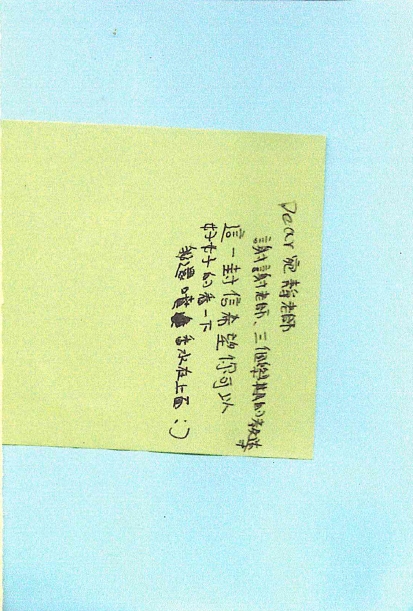 Dear 宛靜老師
謝謝老師、三個學期的教導
這一封信希望你可以
好好的看一下
我還噴香水在上面 :)